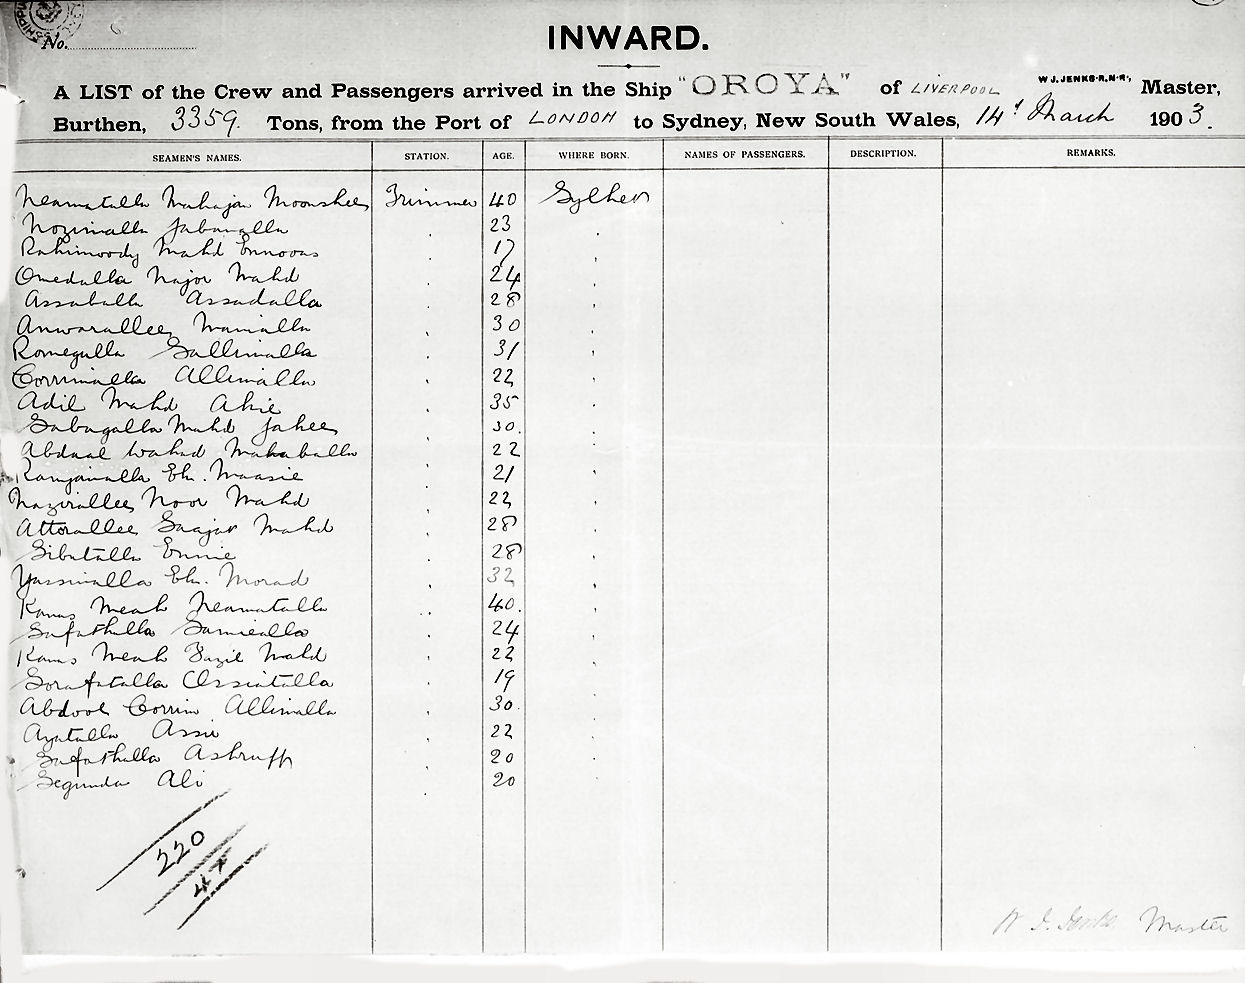 No. 6
INWARD.
A LIST of the Crew and Passengers arrived in the Ship "OROYA" of LIVERPOOL W.J. JENKS. R.N.R., Master,
Burthen, 3359. Tons, from the Port of LONDON to Sydney, New South Wales, 14th March 1903.
SEAMEN'S NAMES. STATION. AGE. WHERE BORN. NAMES OF PASSENGERS. DESCRIPTION. REMARKS.
Neamutulla Mahajan Moonshee Trimmer 40 Sylhet
Nozimulla Jabanulla 23
Rahimoody Mahd Ennoos 17
Omedulla Najor Mahd 24
Assabulla Assadulla 28
Anwarallee Manialla 30
Romegulla Sallimulla 31
Corrimulla Allimulla 22
Adil Mahd Akie 35
Sabagulla Mahd Jakee 30.
Abdual Wahad Mahaballa 22
Ramjanulla Eh. Maasie 21
Nazirallee Noor Mahd 22
Attorallee Saajad Mahd 28
Sibatulla Ennie 28
Yassinulla Eh. Morad 32
Meah Neamatulla 40.
Safathulla Samiealla 24
Meah Fazil Mahd 22
Sorafatulla Ossiatulla 19
Abdool Corrim Allimulla 30.
Ayatulla Assie 22
Safathulla Ashruff 20
Segunda Ali 20
220
47
W. J. Jenks. Master